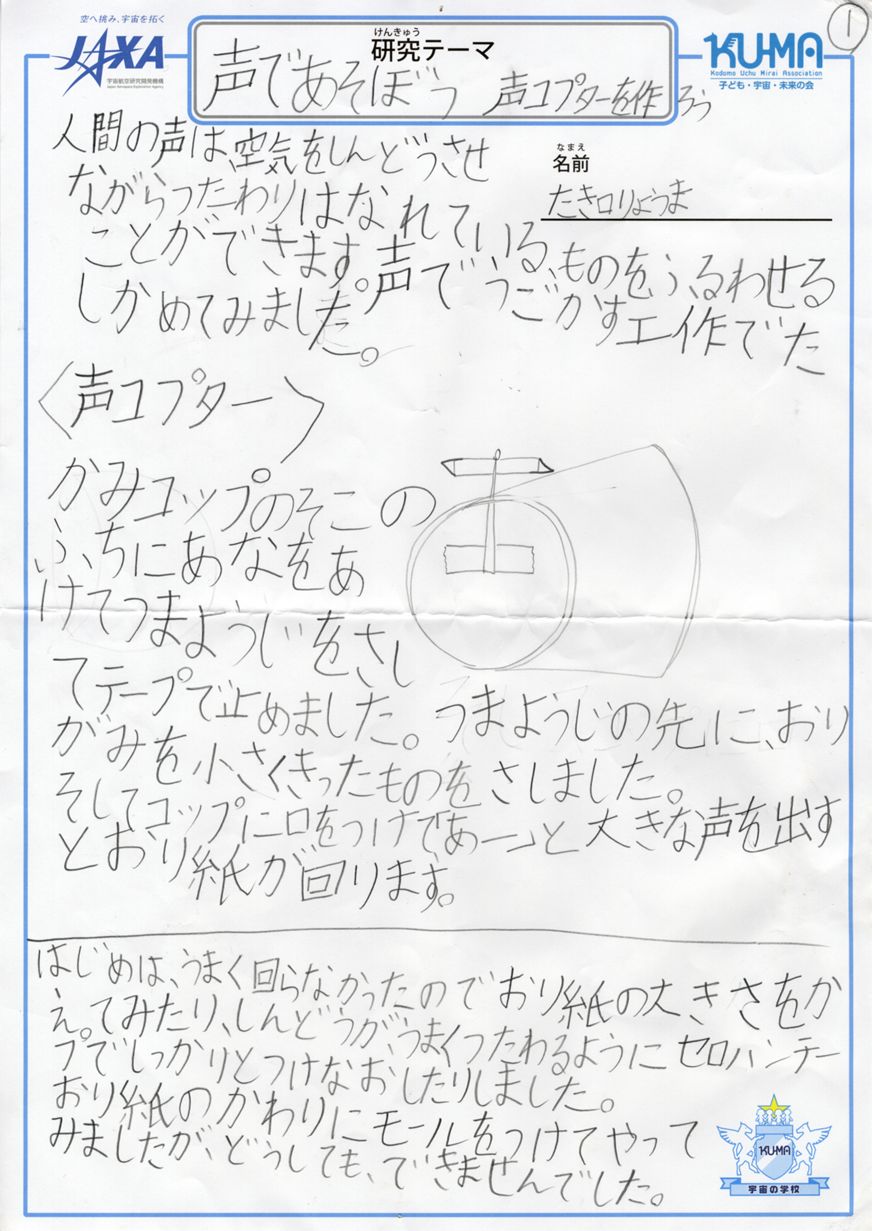 空へ挑み、宇宙を拓く
JAXA
宇宙航空研究開発機構
Japan Aerospace Exploration Agency
けんきゅう
研究テーマ
声であそぼう 声コプターを作ろう
KU-MA
Kodomo Uchu Mirai Association
子ども・宇宙・未来の会
1
なまえ
名前
たき口りょうま
人間の声は、空気をしんどうさせ
ながらつたわりはなれている、ものをふるわせる
ことができます。声でうごかす工作でた
しかめてみました。
〈声コプター〉
かみコップのそこの
ふちにあなをあ
けてつまようじをさし
てテープで止めました。つまようじの先に、おり
がみを小さくきったものをさしました。
そしてコップに口をつけて「あー」と大きな声を出す
とおり紙が回ります。
はじめは、うまく回らなかったのでおり紙の大きさをか
えてみたり、しんどうが、うまくつたわるようにセロハンテー
プでしっかりとつけなおしたりしました。
おり紙のかわりにモールをつけてやって
みましたが、どうしても、できませんでした。
KU-MA
宇宙の学校